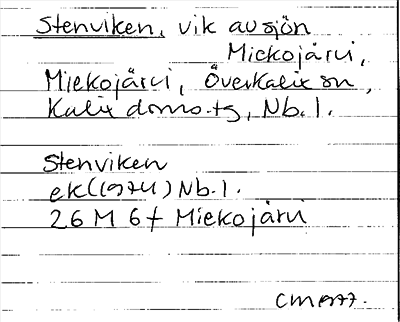 Stenviken, vik av sjön
Miekojärvi,
Miekojärvi, Överkalix sn,
Kalix doms.tg, Nb.l.
Stenviken
ek (1974) Nb.l.
26 M 6f Miekojärvi